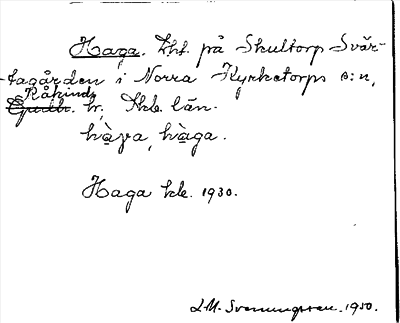 Haga. Lht. på Skultorp Svär-
tagården i Norra Kyrketorps s:n,
Kåkinds
Gudh. hr, Skb. län.
hàga, hàga.
Haga kle. 1930.
L M. Svenungsson. 1950.